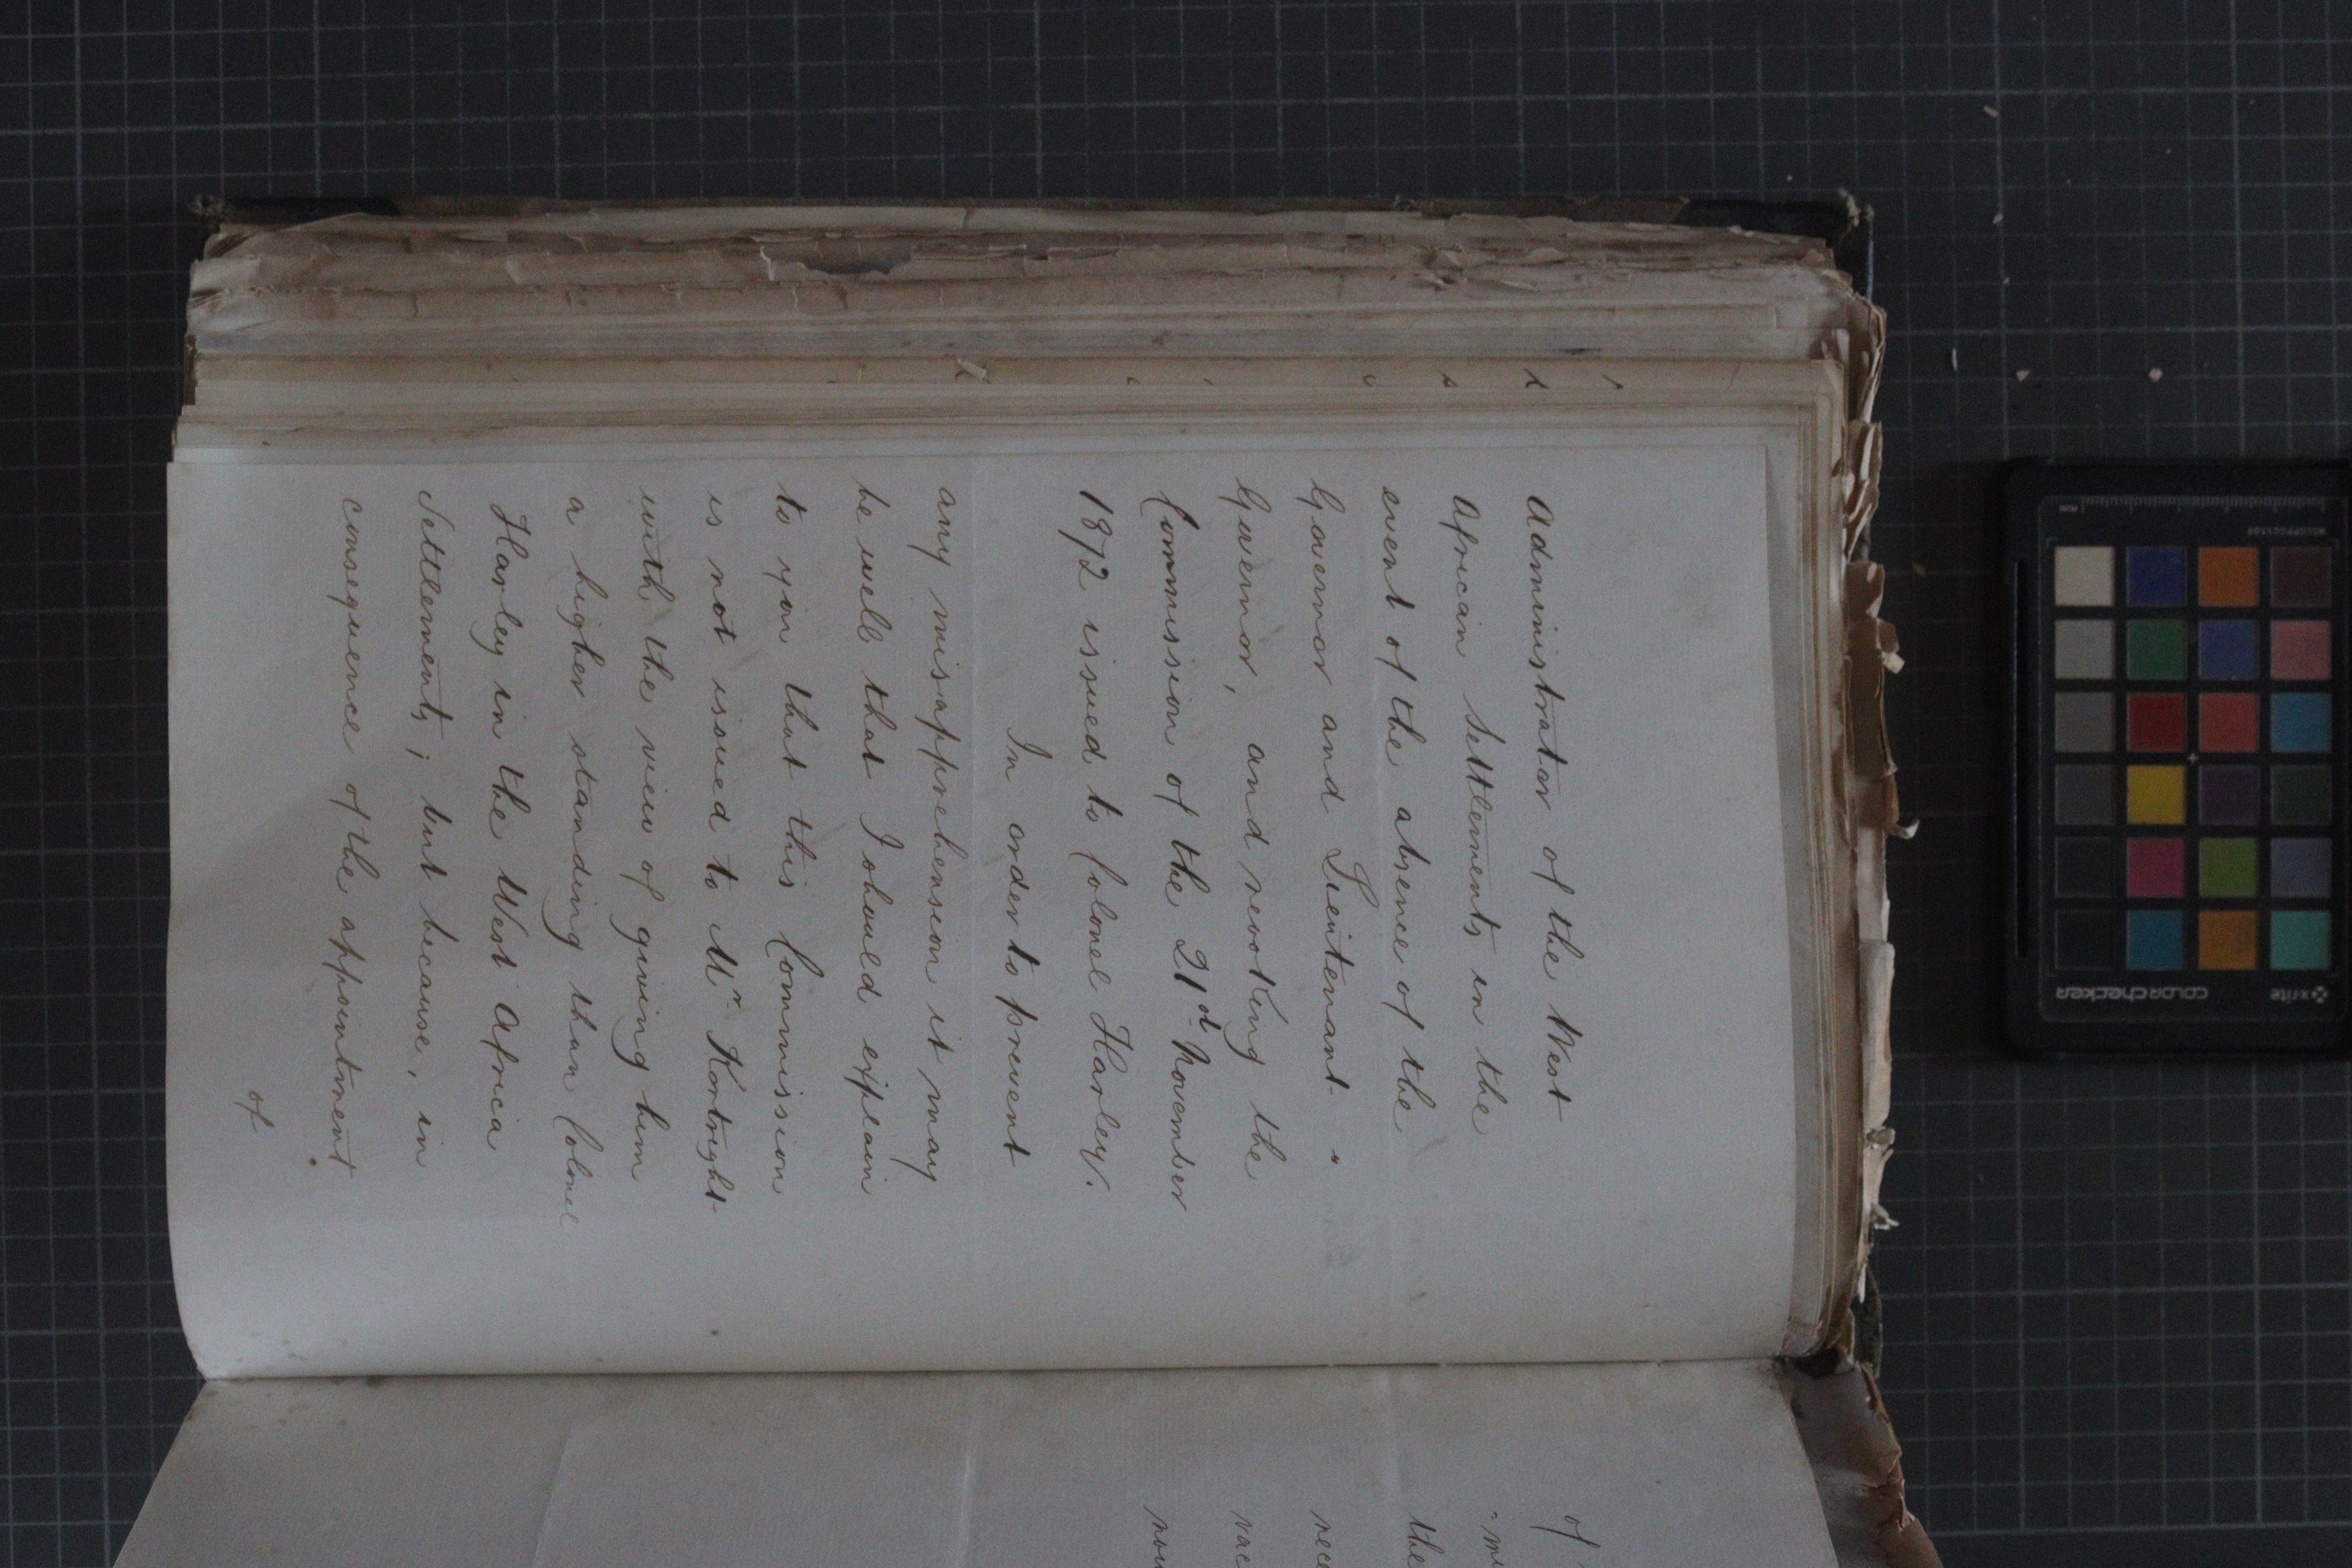 Administrator of the West
African Settlements in the
event of the absence of the
Governor and Lieutenant -
Governor, and revoking the
Commission of the 21d. November
1872 issued to Colonel Harley.
In order to prevent
any misapprehension it may
be well that I should explain
to you that this Commission
is not issued to Mr Kortright
with the view of giving him
a higher standing than Colonel
Harley in the West Africa
Settlements; but because, in
consequence of the appointment
of
of
the
x-rite
colorchecker